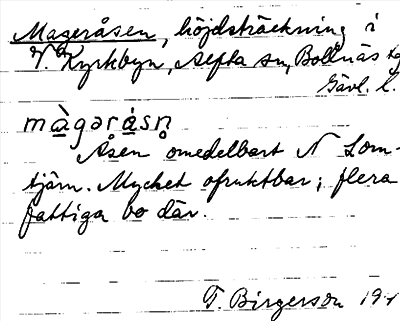 Mageråsen, höjdsträckning i
V. Kyrkbyn, Alfta sn, Bollnäs tg
Gävl. l.
màgərásn̥
Åsen omedelbart N Lom-
tjärn. Mycket ofruktbar; flera
fattiga bo där.
T. Birgerson 19